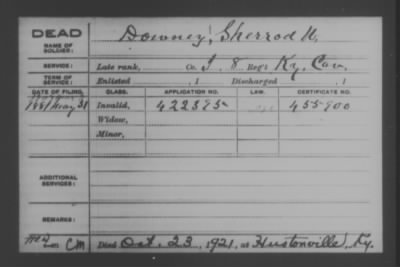 DEAD
NAME OF SOLDIER:
Downey, Sherrod U.
SERVICE: Late rank, Co. I, 8 Reg't Ky. Cav.
TERM OF SERVICE: Enlisted , 1 Discharged , 1
DATE OF FILING. CLASS. APPLICATION NO. LAW. CERTIFICATE NO.
1881 May 31 Invalid, 422325 455900
Widow,
Minor,
ADDITIONAL SERVICES:
REMARKS:
CM Died Oct. 23, 1921, at Hustonville, Ky.